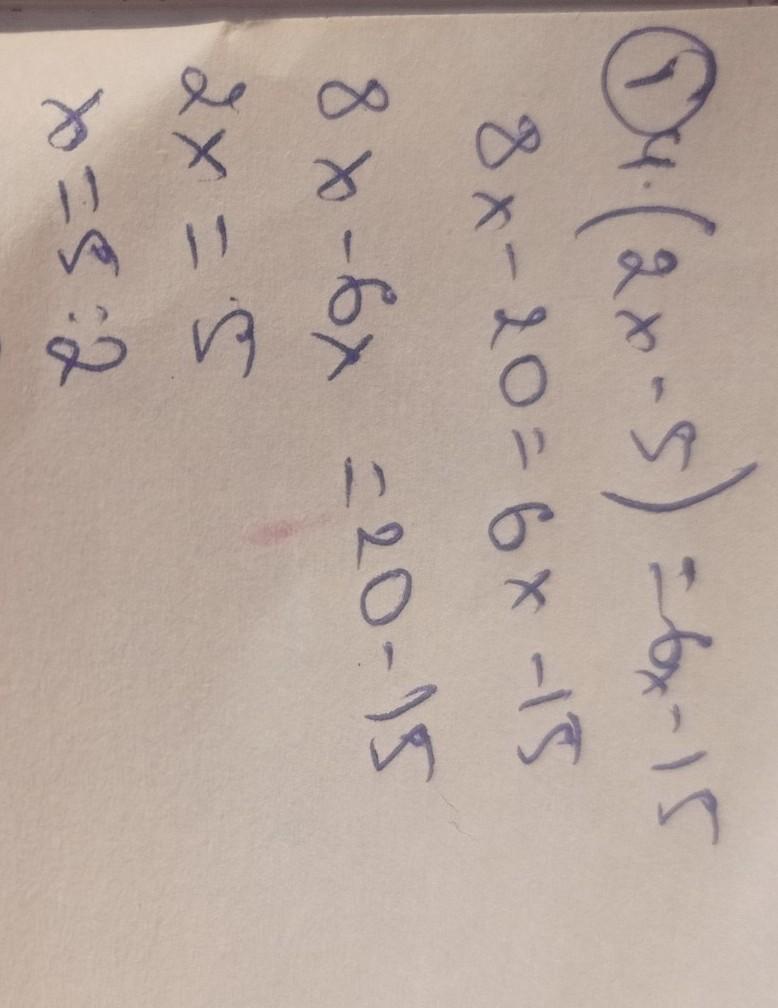 ① 4·(2x-5)=6x-15
8x-20=6x-15
8x-6x=20-15
2x=5
x=5:2